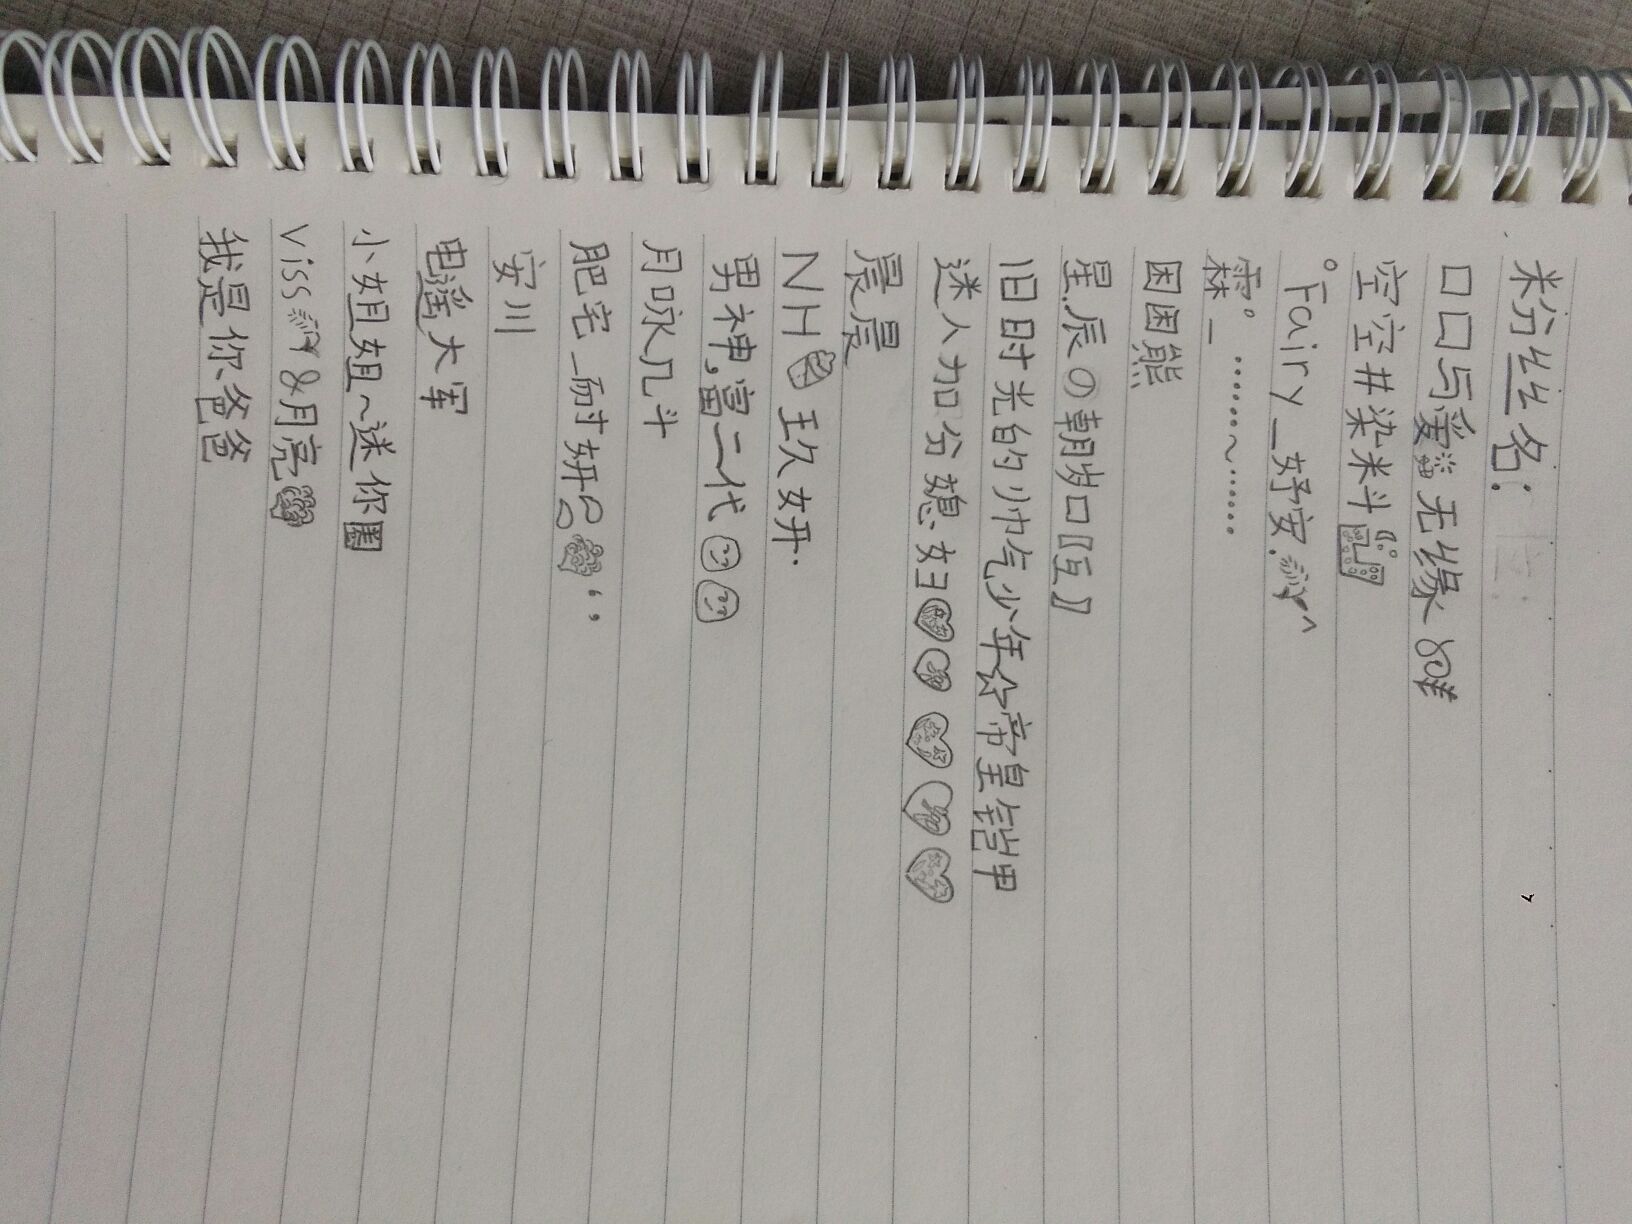 粉丝名:
口口与爱无缘
空空井染米斗
°Fairy_妤安.^
霖°_ ……~……
困困熊
星辰の朝岁口〖互〗
旧日时光的小巾气少年☆帝皇铠甲
迷人加分媳妇
晨晨
NH 王久妍.
男神,富二代
月咏几斗
肥宅_耐妍
安川
电遥大军
小姐姐~迷你圈
viss &月亮
我是你爸爸